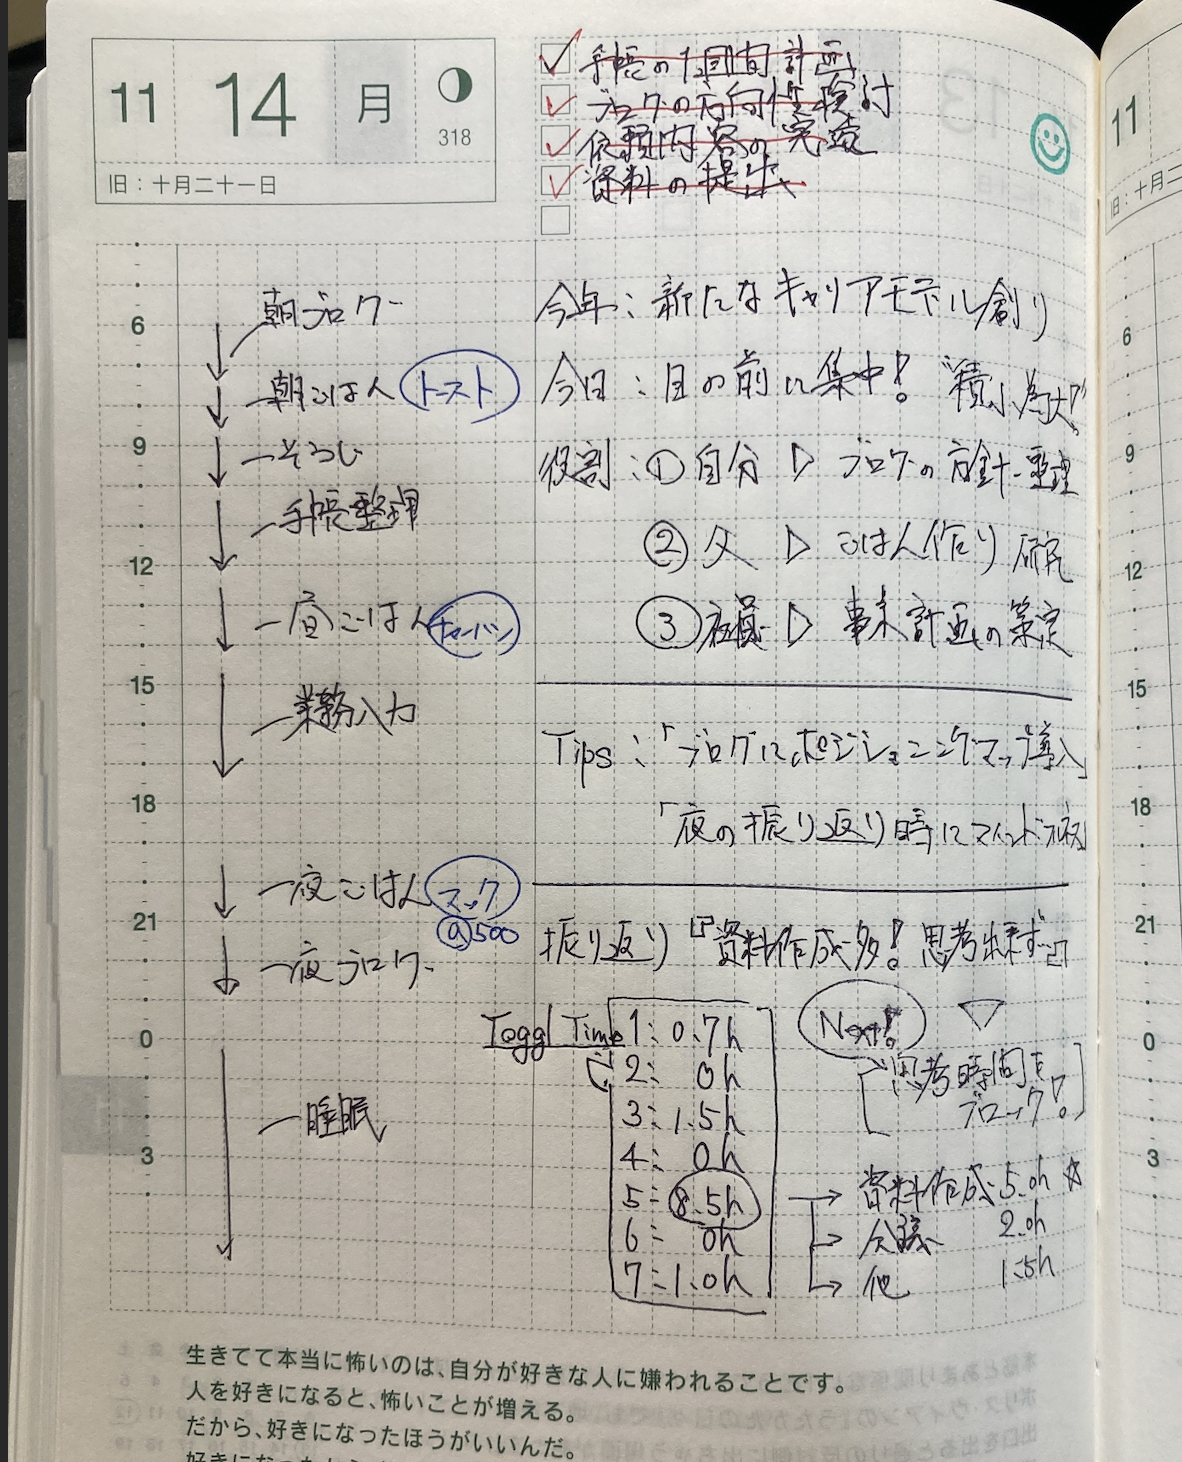 11 14 月
318
旧：十月二十一日
手帳の1週間計画
ブログの方向性検討
依頼内容の完遂
資料の提出
6
9
12
15
18
21
0
3
朝ブログ
朝ごはん トースト
そうじ
手帳整理
昼ごはん チャーハン
業務入力
夜ごはん マック
@500
夜ブログ
睡眠
今年：新たなキャリアモデル創り
今日：目の前に集中! "積小為大"
役割：①自分 ▷ ブログの方針整理
②父 ▷ ごはん作り 研究
③社員 ▷ 事業計画の策定
Tips：「ブログにポジショニングマップ導入」
「夜の振り返り時にマインド
振り返り『資料作成多! 思考出来ず…』
Toggl Time
1: 0.7h
2: 0h
3: 1.5h
4: 0h
5: 8.5h
6: 0h
7: 1.0h
Next!
思考時間を
ブロック!
→ 資料作成 5.0h ☆
→ 会議 2.0h
→ 他 1.5h
生きてて本当に怖いのは、自分が好きな人に嫌われることです。
人を好きになると、怖いことが増える。
だから、好きになったほうがいいんだ。
11
旧：十月二
6
9
12
15
18
21
0
3